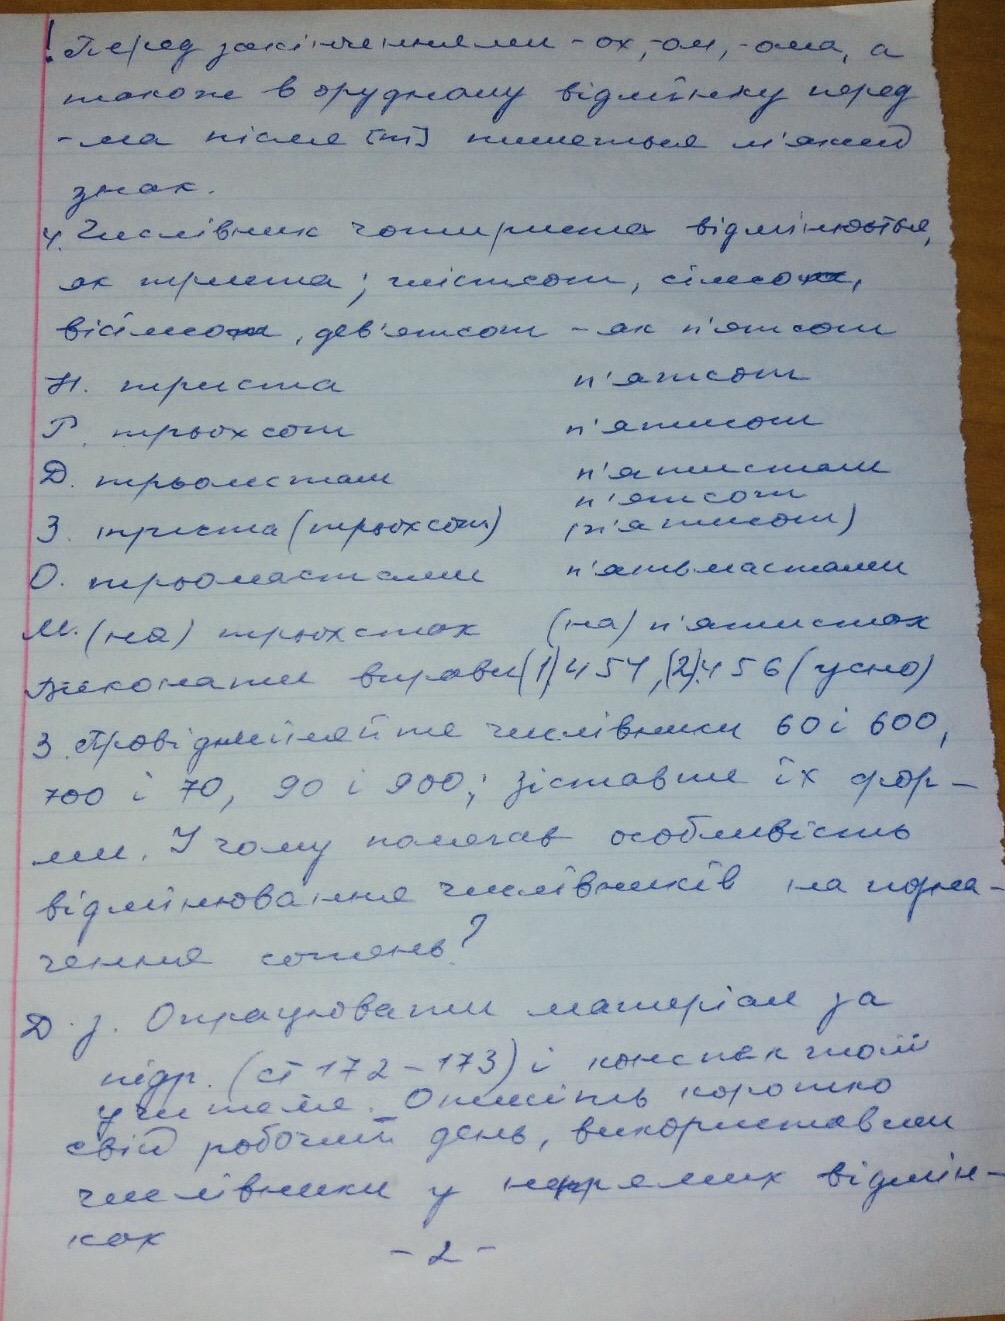 ! Перед закінченнями -ох, -ом, -ома, а
також в орудному відмінку перед
-ма після [т] пишеться м'який
знак.
4. Числівник чотириста відмінюється,
як триста; шістсот, сімсот,
вісімсот, дев'ятсот - як п'ятсот
Н. триста п'ятсот
Р. трьохсот п'ятисот
Д. трьомстам п'ятистам
З. триста (трьохсот) п'ятсот (п'ятисот)
О. трьомастами п'ятьмастами
М. (на) трьохстах (на) п'ятистах
Виконати вправи (1) 454, (2) 456 (усно)
3. Провідміняйте числівники 60 і 600,
700 і 70, 90 і 900; зіставте їх фор-
ми. У чому полягає особливість
відмінювання числівників на позна-
чення сотень?
Д. з. Опрацювати матеріал за
підр. (ст 172 - 173) і конспектом
учителя. Опишіть коротко
свій робочий день, використавши
числівники у непрямих відмін-
ках
- 2 -